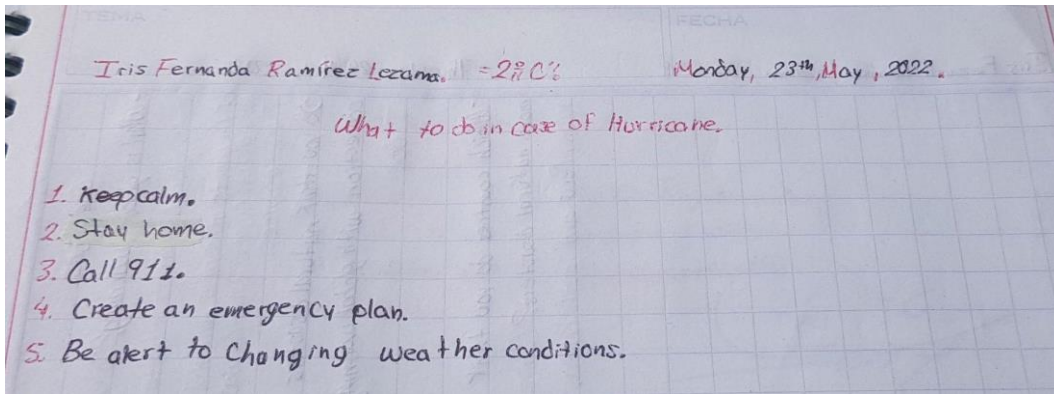 TEMA FECHA
Iris Fernanda Ramírez Lezama. =2º C% Monday, 23th, May, 2022.
What to do in case of Hurricane.
1. Keep calm.
2. Stay home.
3. Call 911.
4. Create an emergency plan.
5. Be alert to Changing weather conditions.